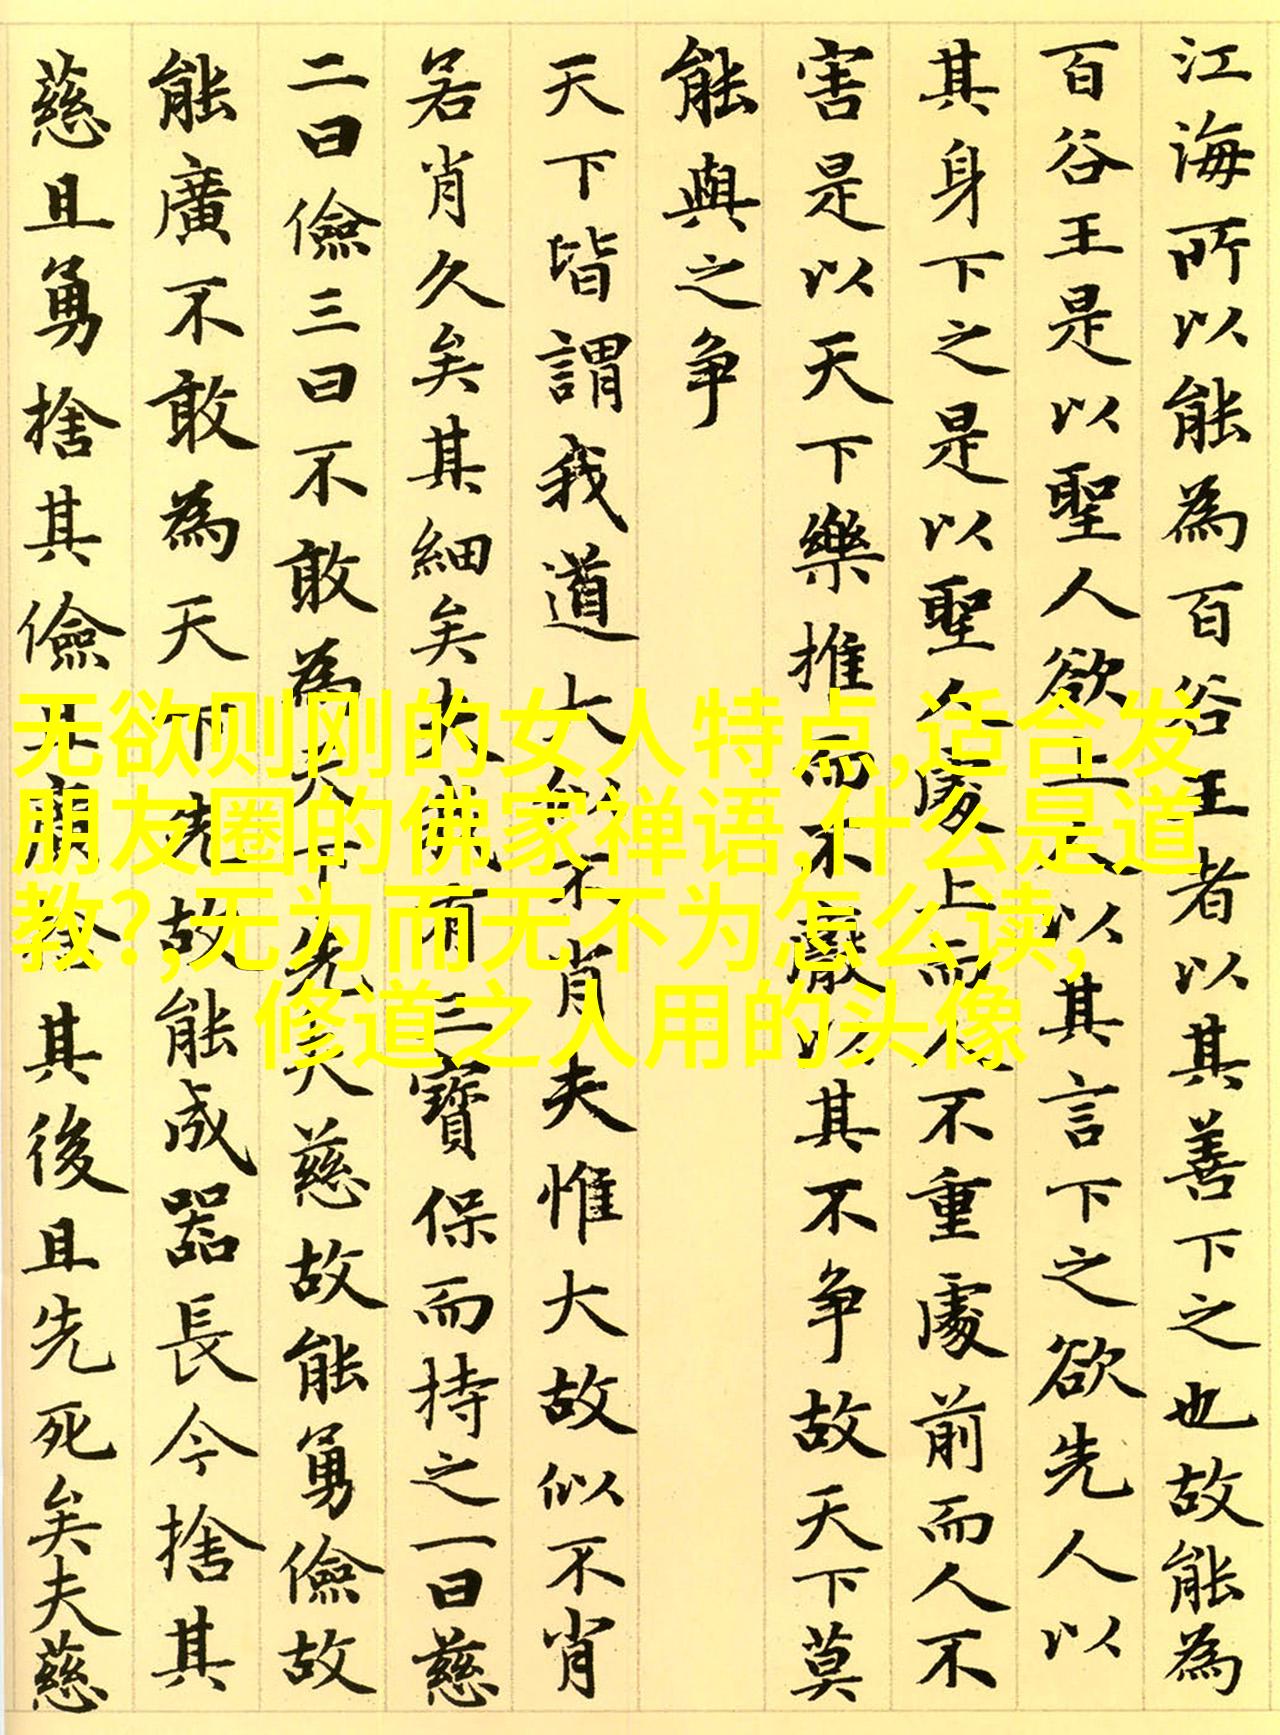 江海所以能為百谷王者以其善下之也故能為
百谷王是以聖人欲上人以其言下之欲先人以
其身下之是以聖人處上而人不重處前而人不
害是以天下樂推而不厭以其不争故天下莫
能與之争
天下皆謂我道大似不肖夫惟大故似不肖
若肖久矣其細矣夫我有三寶保而持之一曰慈
二曰儉三曰不敢為天下先夫慈故能勇儉故
能廣不敢為天下先故能成器長今捨其
慈且勇捨其儉且廣捨其後且先死矣夫慈
无欲则刚的女人特点,适合发
朋友圈的佛家禅语,什么是道
教?,无为而无不为怎么读,
修道之人用的头像